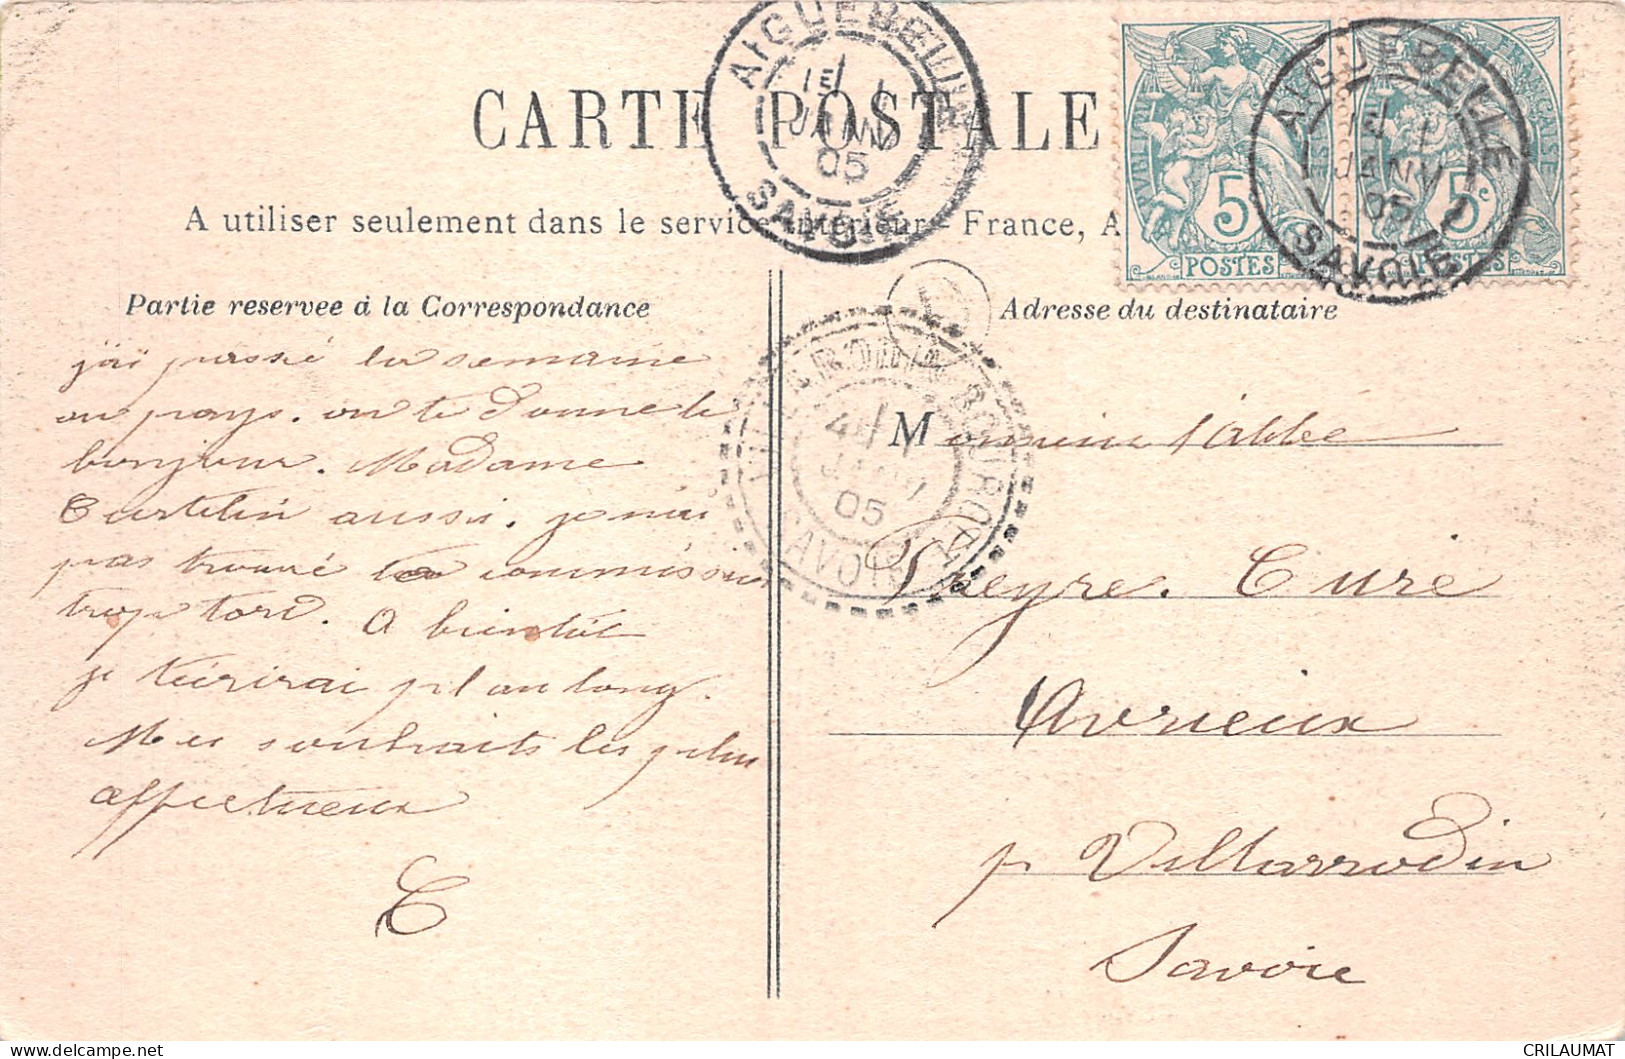 CARTE POSTALE
A utiliser seulement dans le service intérieur - France, A
Partie reservee à la Correspondance
j'ai passé la semaine
au pays. on te donne le
bonjour. Madame
Castelin aussi. je n'ai
pas trouvé la commission
trop tard. A bientôt
je t'écrirai pl au long.
Mes souhaits les plus
affectueux
C
AIGUEBELLE
1E 1
JANV
05
SAVOIE
AIGUEBELLE
1E 1
JANV
05
SAVOIE
RÉPUBLIQUE FRANÇAISE
5c
POSTES
FRANÇAISE
5c
POSTES
VILLARODIN-BOURGET
4E
JANV
05
SAVOIE
Adresse du destinataire
Monsieur l'abbé
Curé
Avrieux
p Villarrodin
Savoie
CRILAUMAT